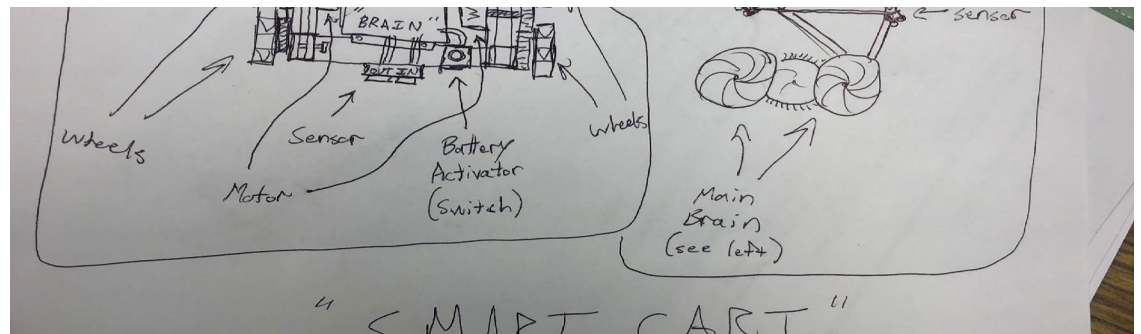 "BRAIN"
Sensor
OUT IN
wheels
Sensor
wheels
Battery
Activator
(Switch)
Motor
Main
Brain
(see left)
"SMART CART"